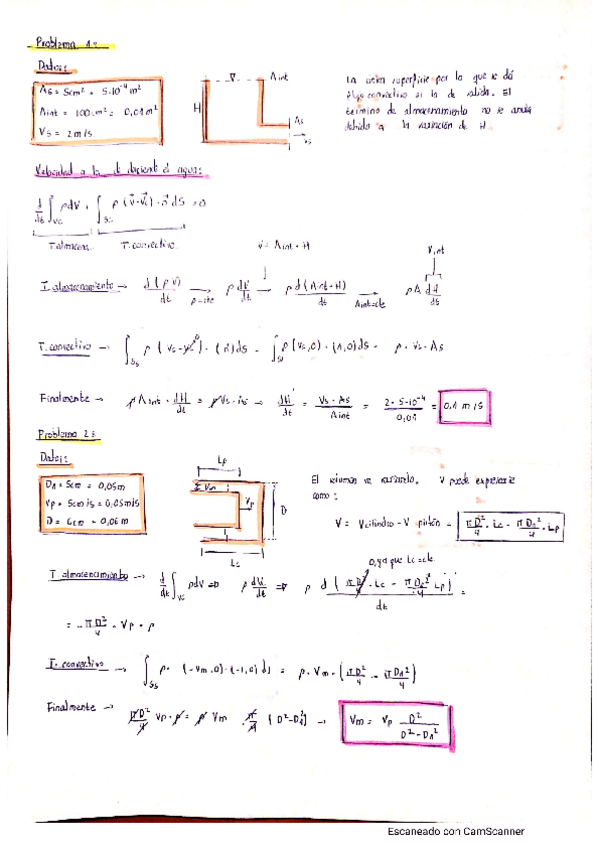 Problema 1:
Datos:
As = 5cm² = 5·10⁻⁴ m²
Aint = 100cm² = 0,01m²
Vs = 2m/s
H
Aint
As
Vs
La única superficie por la que se da
flujo convectivo es la de salida. El
término de almacenamiento no se anula
debido a la variación de H.
Velocidad a la que desciende el agua:
d/dt ∫Vc ρdV + ∫Sc ρ(v⃗-v⃗c)·n⃗ dS = 0
T. almacena. T. convectivo.
V = Aint · H
T. almacenamiento → d(ρV)/dt → ρ=cte ρ dV/dt → ρ d(Aint·H)/dt → Aint=cte ρA dH/dt
Vint
T. convectivo → ∫Ss ρ(Vs-Vc)·(n⃗)dS = ∫Ss ρ(Vs,0)·(1,0)dS = ρ·Vs·As
0
Finalmente → ρAint · dH/dt = ρVs·As → dH/dt = Vs·As/Aint = 2·5·10⁻⁴/0,01 = 0,1 m/s
Problema 2:
Datos:
D1 = 5cm = 0,05m
Vp = 5cm/s = 0,05m/s
D = 6cm = 0,06m
Lp
Vm
Vp
D
Lc
El volumen va variando. V puede expresarse
como:
V = Vcilindro - V pistón = πD²/4 · Lc - πD1²/4 · Lp
0, ya que Lc=cte.
T. almacenamiento → d/dt ∫Vc ρdV ⇒ ρ dV/dt ⇒ ρ d(πD²/4 · Lc - πD1²/4 · Lp)/dt =
= - πD²/4 · Vp · ρ
T. convectivo → ∫Ss ρ·(-Vm,0)·(-1,0)dS = ρ·Vm·(πD²/4 - πD1²/4)
Finalmente → πD²/4 Vp·ρ = ρ Vm π/4 (D²-D1²) → Vm = Vp D²/D²-D1²
Escaneado con CamScanner